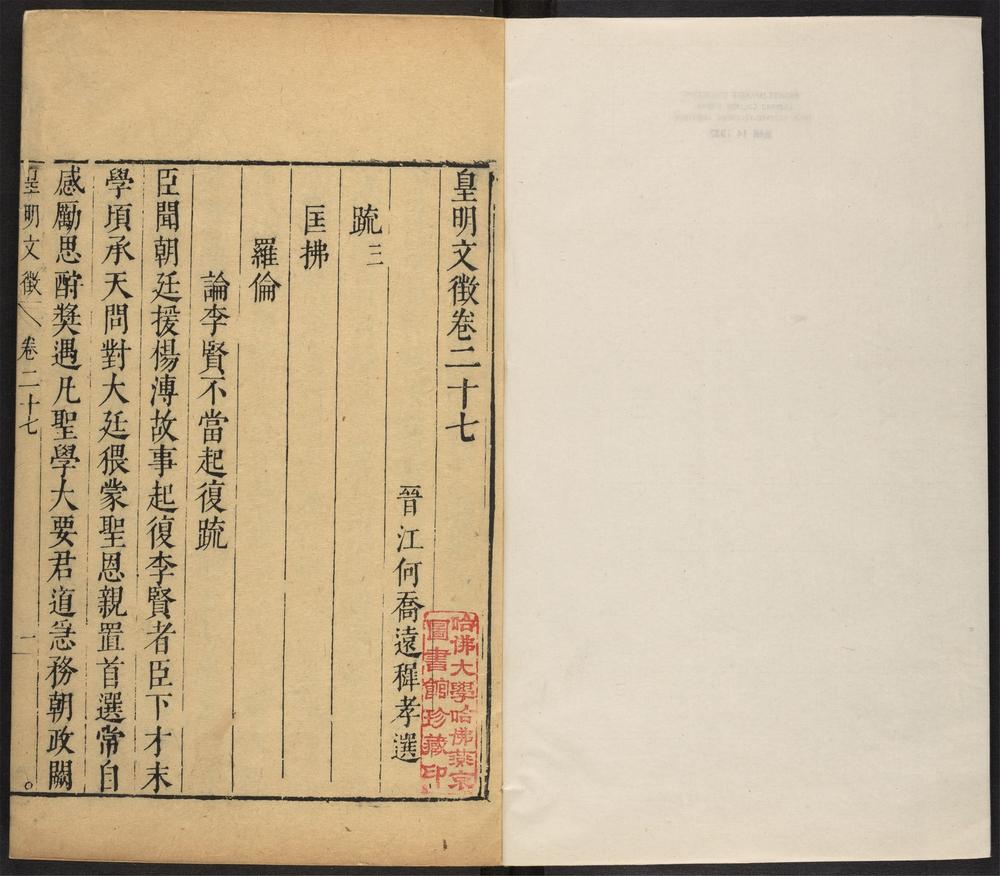 皇明文徵卷二十七
晉江何喬遠穉孝選
疏三
匡拂
羅倫
論李賢不當起復疏
臣聞朝廷援楊溥故事起復李賢者臣下才末
學頃承天問對大廷猥蒙聖恩親置首選常自
感勵思酧獎遇凡聖學大要君道急務朝政闕
皇明文徵 卷二十七 一
哈佛大學哈佛燕京
圖書館珍藏印